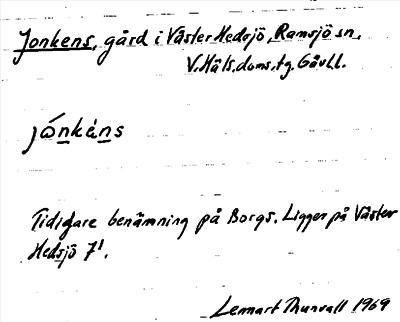 Jonkens, gård i Väster Hedsjö, Ramsjö sn,
V. Häls. doms. tg. Gävl.
jónkèns
Tidigare benämning på Borgs. Ligger på Väster
Hedsjö 7¹.
Lennart Thunvall 1969